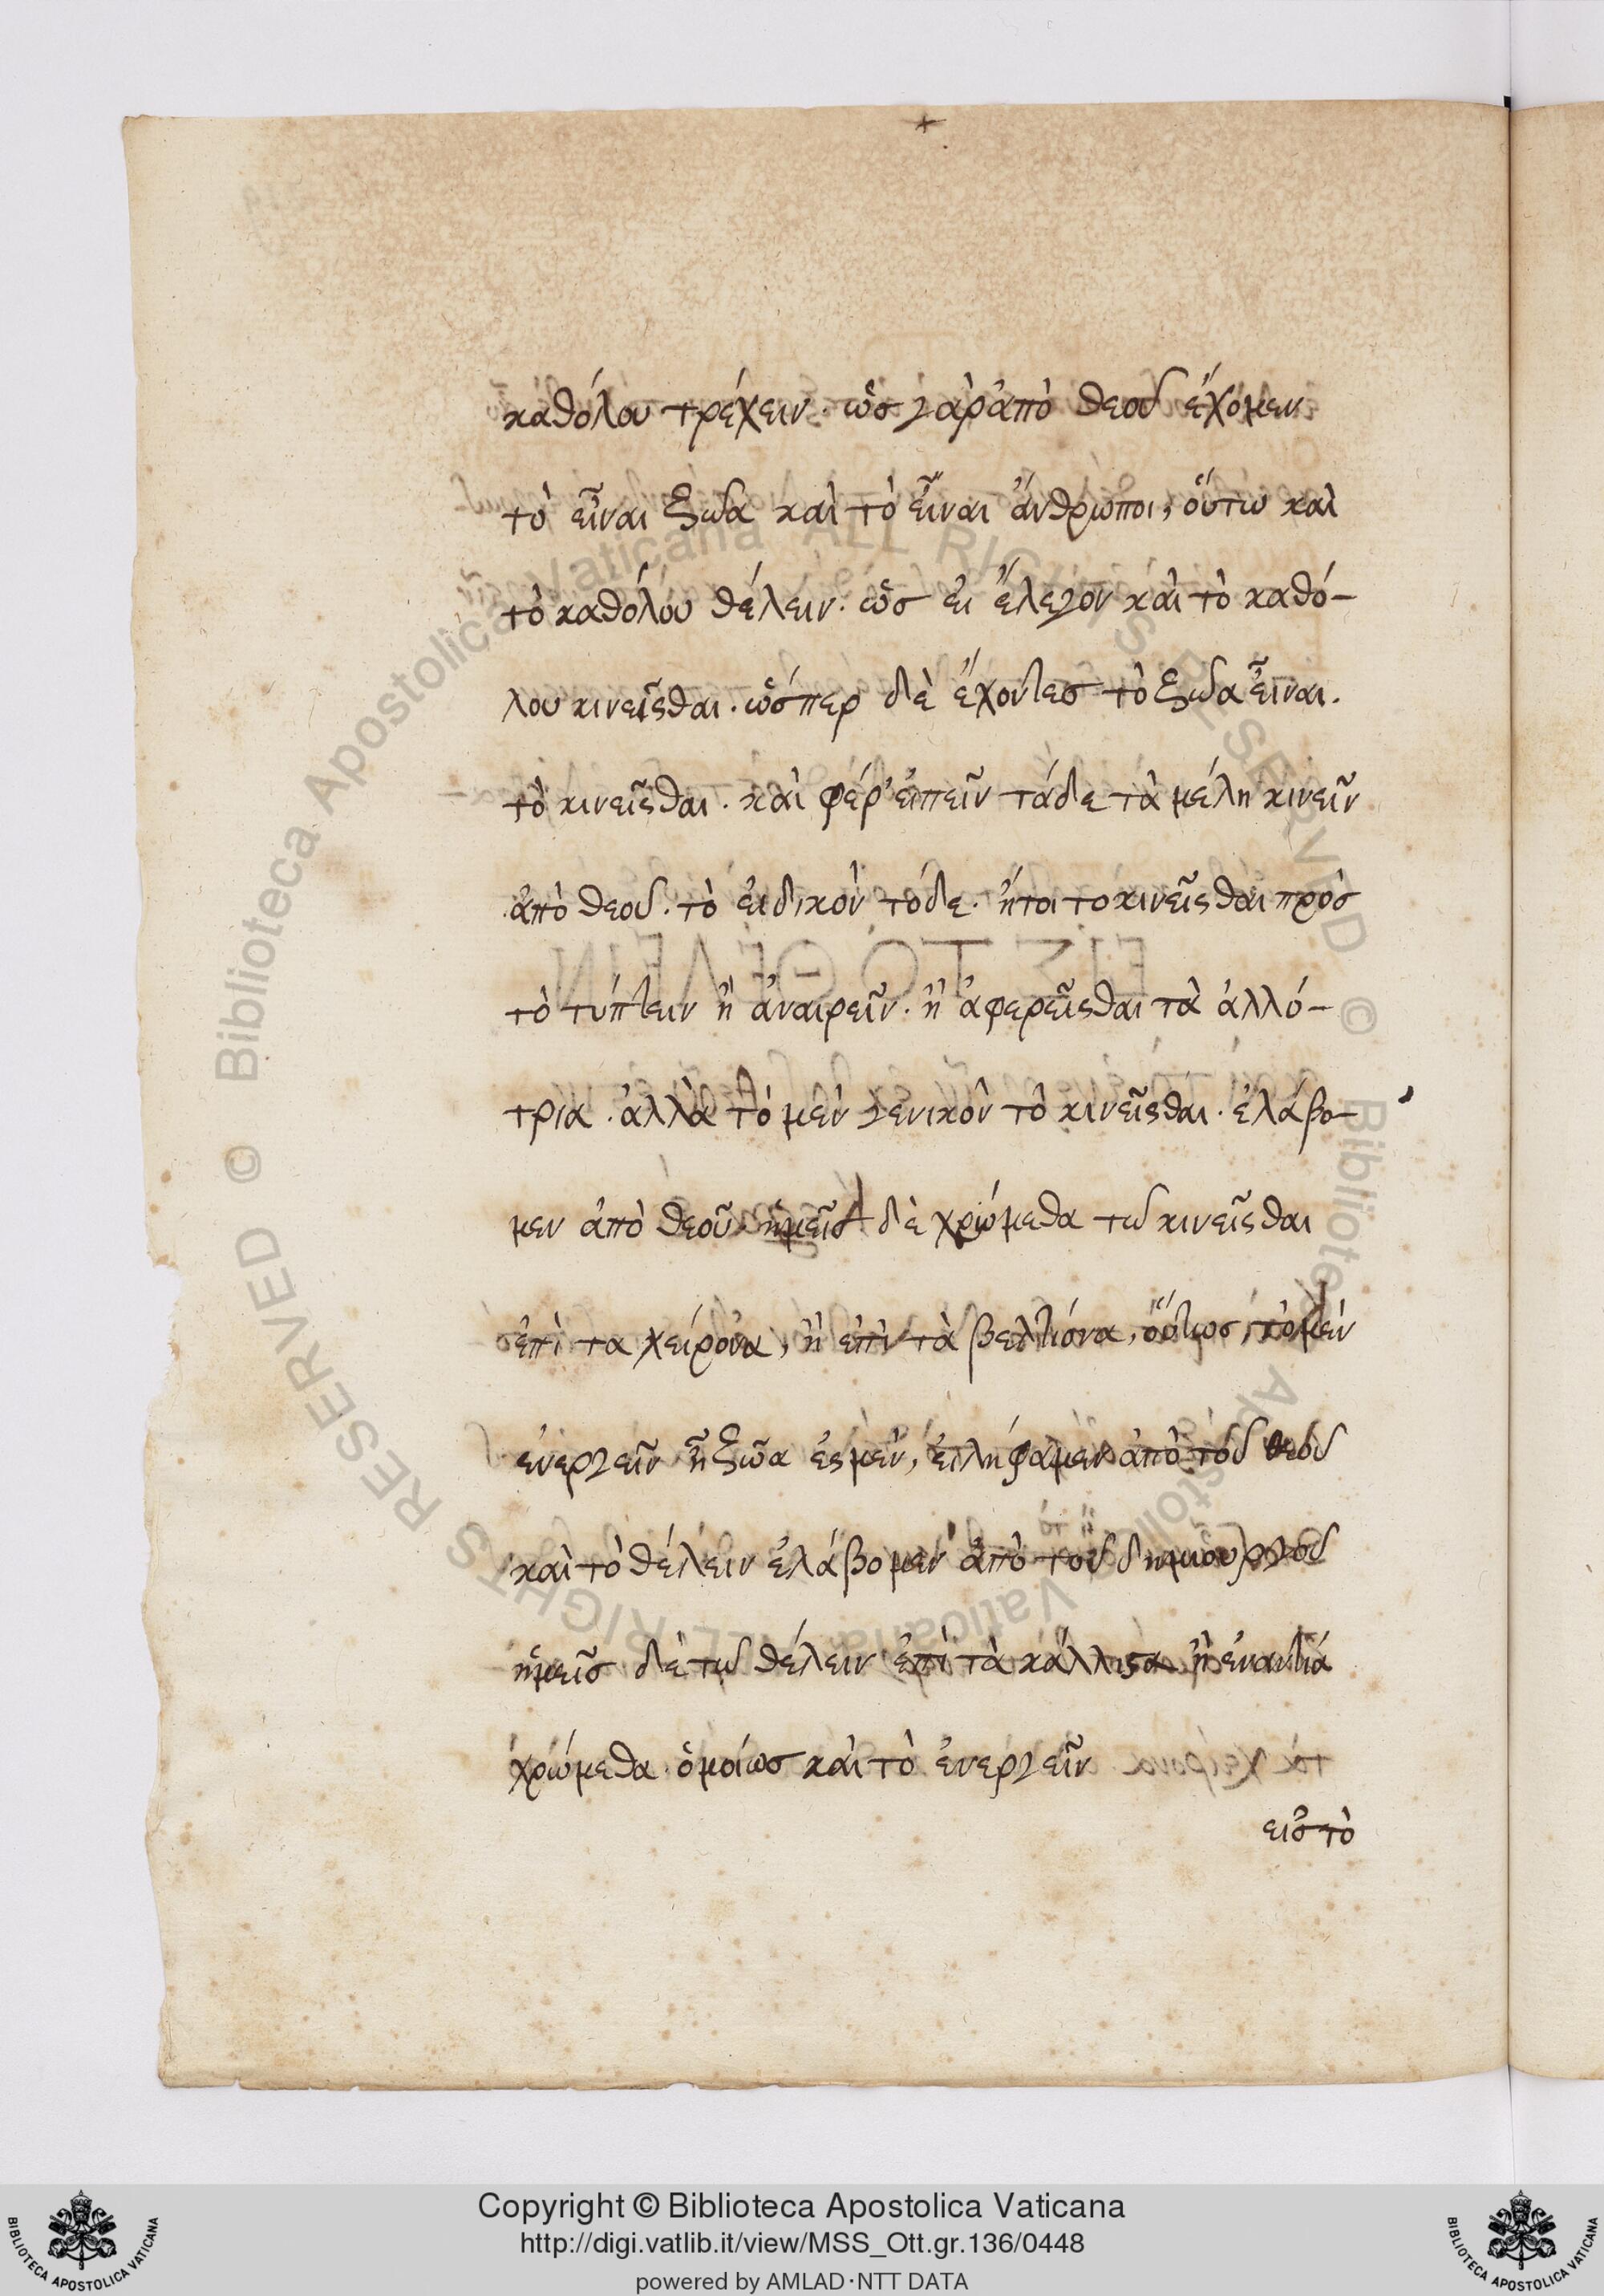 καθόλου τρέχειν. ὡς γὰρ ἀπὸ θεοῦ ἔχομεν
τὸ εἶναι ζῶα καὶ τὸ εἶναι ἄνθρωποι, οὕτω καὶ
τὸ καθόλου θέλειν. ὡς εἰ ἔλεγον καὶ τὸ καθό-
λου κινεῖσθαι. ὥσπερ δὲ ἔχοντες τὸ ζῶα εἶναι.
τὸ κινεῖσθαι. καὶ φέρ' εἰπεῖν τάδε τὰ μέλη κινεῖν
ἀπὸ θεοῦ. τὸ εἰδικὸν τόδε. ἤτοι το κινεῖσθαι πρὸς
τὸ τύπτειν ἢ ἀναιρεῖν. ἢ ἀφερεῖσθαι τὰ ἀλλό-
τρια. ἀλλὰ τὸ μὲν γενικὸν τὸ κινεῖσθαι. ἐλάβο-
μεν ἀπὸ θεοῦ. ἡμεῖς δὲ χρώμεθα τῶ κινεῖσθαι
ἐπὶ τα χείρονα, ἢ ἐπὶ τὰ βελτίονα, οὕτως, τὸ μὲν
ἐνεργεῖν ἧ ζῶα ἐσμὲν, εἰλήφαμεν ἀπὸ τοῦ θεοῦ
καὶ τὸ θέλειν ἐλάβομεν ἀπὸ τοῦ δημιουργοῦ
ἡμεῖς δὲ τῶ θέλειν ἐπὶ τὰ κάλλιστα ἢ ἐναντία
χρώμεθα ὁμοίως καὶ τὸ ἐνεργεῖν
εἰς τὸ
Biblioteca Apostolica Vaticana ALL RIGHTS RESERVED © Biblioteca Apostolica Vaticana ALL RIGHTS RESERVED ©
Copyright © Biblioteca Apostolica Vaticana
http://digi.vatlib.it/view/MSS_Ott.gr.136/0448
powered by AMLAD·NTT DATA
BIBLIOTECA APOSTOLICA VATICANA
BIBLIOTECA APOSTOLICA VATICANA